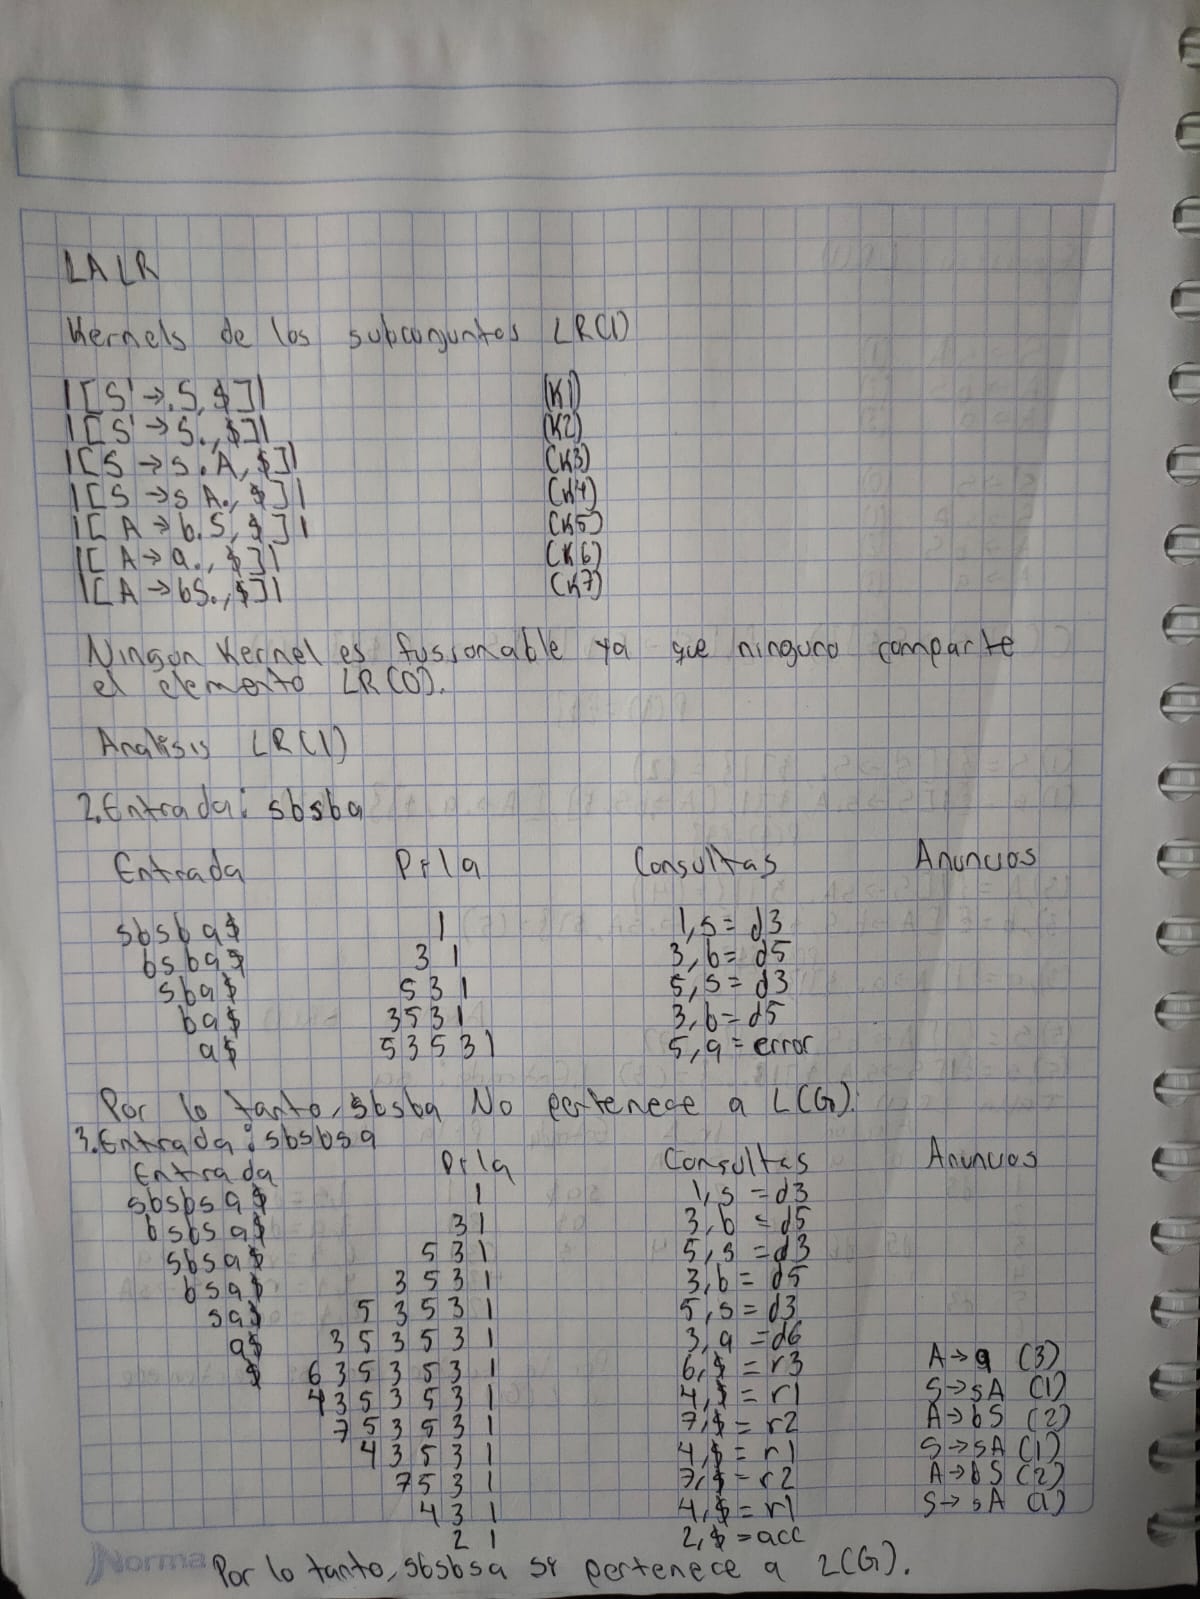 LALR
Kernels de los subconjuntos LR(1)
|[S' → .S, $]| (K1)
|[S' → S., $]| (K2)
|[S → s.A, $]| (K3)
|[S → sA., $]| (K4)
|[A → b.S, $]| (K5)
|[A → a., $]| (K6)
|[A → bS., $]| (K7)
Ningun Kernel es fussionable ya que ninguno comparte
el elemento LR(0).
Analisis LR(1)
2.Entrada: sbsba
Entrada Pila Consultas Anuncios
sbsba$ 1 1,s = d3
bsba$ 31 3,b= d5
sba$ 531 5,s= d3
ba$ 3531 3,b= d5
a$ 53531 5,a = error
Por lo tanto, sbsba No pertenece a L(G).
3.Entrada: sbsbsa
Entrada Pila Consultas Anuncios
sbsbsa$ 1 1,s = d3
bsbsa$ 31 3,b = d5
sbsa$ 531 5,s = d3
bsa$ 3531 3,b= d5
sa$ 53531 5,s = d3
a$ 353531 3,a = d6
$ 6353531 6,$ = r3 A→a (3)
4353531 4,$ = r1 S→sA (1)
753531 7,$ = r2 A→bS (2)
43531 4,$ = r1 S→sA (1)
7531 7,$ = r2 A→bS (2)
431 4,$ = r1 S→sA (1)
21 2,$ = acc
Norma
Por lo tanto, sbsbsa si pertenece a L(G).